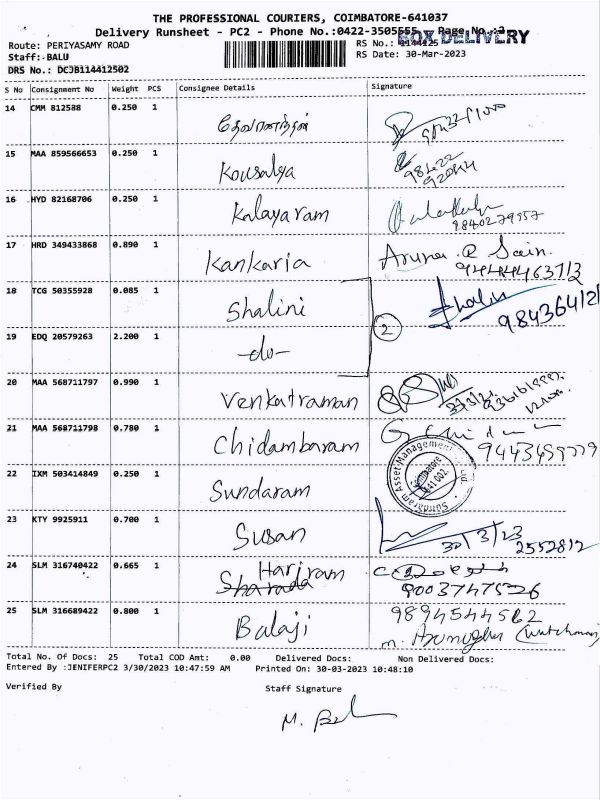 THE PROFESSIONAL COURIERS, COIMBATORE-641037
Delivery Runsheet - PC2 - Phone No.:0422-3505555, Page No.:2
BOX DELIVERY
Route: PERIYASAMY ROAD RS No.: 1144125
Staff:BALU RS Date: 30-Mar-2023
DRS No.: DCJB114412502
S No Consignment No Weight PCS Consignee Details Signature
14 CMM 812588 0.250 1
15 MAA 859566653 0.250 1 Kousalya 98422
16 HYD 82168706 0.250 1 Kalayaram 9840279957
17 HRD 349433868 0.890 1 Kankaria Aruna R Sain
18 TCG 50355928 0.085 1 Shalini Shalini 984364121
19 EDQ 20579263 2.200 1 -do- 2
20 MAA 568711797 0.990 1 Venkatraman
21 MAA 568711798 0.780 1 Chidambaram
22 IXM 503414849 0.250 1 Sundaram Sundaram Asset Management Coimbatore 641 002.
23 KTY 9925911 0.700 1 Susan 30/3/23 2552812
24 SLM 316740422 0.665 1 Hariram Sharada 9003747526
25 SLM 316689422 0.800 1 Balaji 9894544562
m. Arumugham (watchman)
Total No. Of Docs: 25 Total COD Amt: 0.00 Delivered Docs: Non Delivered Docs:
Entered By :JENIFERPC2 3/30/2023 10:47:59 AM Printed On: 30-03-2023 10:48:10
Verified By Staff Signature